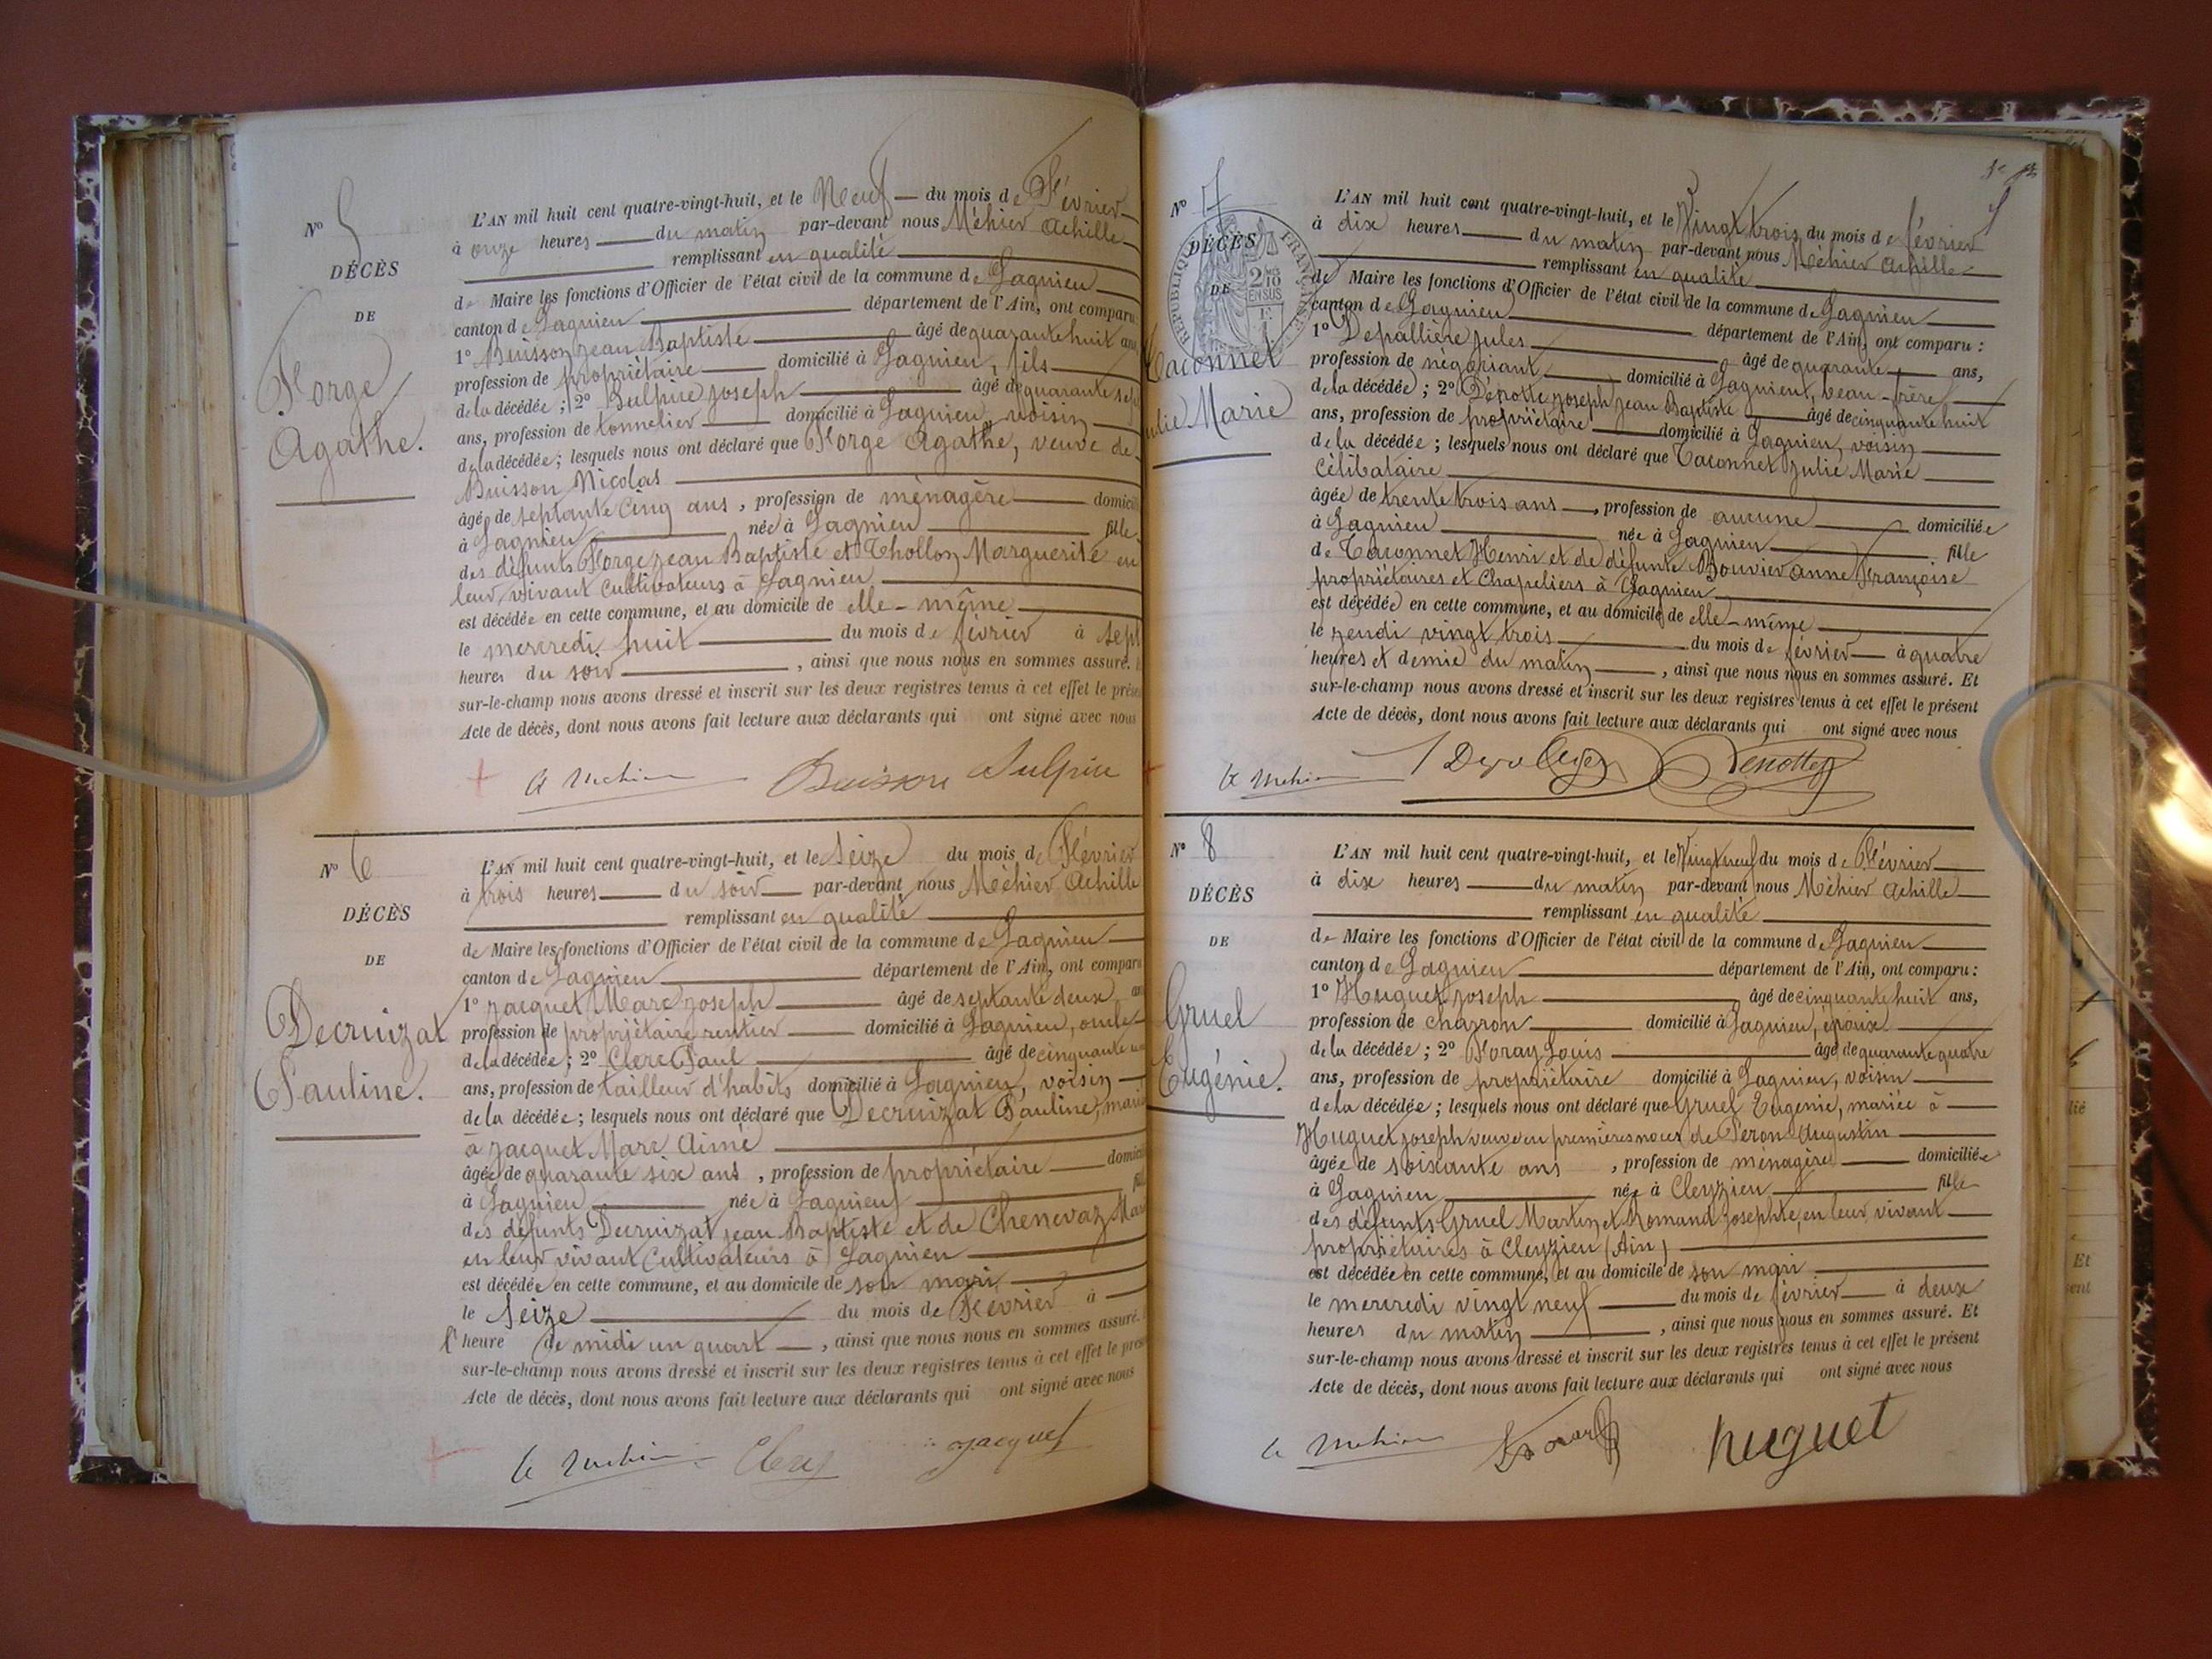 N° 5
DÉCÈS
DE
Forge
Agathe.
L'AN mil huit cent quatre-vingt-huit, et le Neuf du mois de Février
à onze heures du matin par-devant nous Méhier Achille
remplissant en qualité
de Maire les fonctions d'Officier de l'état civil de la commune de Lagnieu
canton de Lagnieu département de l'Ain, ont comparu
1° Buisson Jean Baptiste âgé de quarante huit ans
profession de propriétaire domicilié à Lagnieu, fils
de la décédée; 2° Sulpice Joseph âgé de quarante sept
ans, profession de tonnelier domicilié à Lagnieu, voisin
de la décédée; lesquels nous ont déclaré que Forge Agathe, veuve de
Buisson Nicolas
âgée de septante cinq ans, profession de ménagère domicil
à Lagnieu née à Lagnieu fille
des défunts Forge Jean Baptiste et Thollon Marguerite en
leur vivant cultivateurs à Lagnieu
est décédée en cette commune, et au domicile de elle-même
le mercredi huit du mois de février à sept
heures du soir, ainsi que nous nous en sommes assuré.
sur-le-champ nous avons dressé et inscrit sur les deux registres tenus à cet effet le prése
Acte de décès, dont nous avons fait lecture aux déclarants qui ont signé avec nous
A Méhier Buisson Sulpice
N° 6
DÉCÈS
DE
Decruizat
Pauline.
L'AN mil huit cent quatre-vingt-huit, et le Seize du mois de Février
à trois heures du soir par-devant nous Méhier Achille
remplissant en qualité
de Maire les fonctions d'Officier de l'état civil de la commune de Lagnieu
canton de Lagnieu département de l'Ain, ont comparu
1° Jacquet Marc Joseph âgé de septante deux an
profession de propriétaire rentier domicilié à Lagnieu, oncle
de la décédée; 2° Clerc Paul âgé de cinquante un
ans, profession de tailleur d'habits domicilié à Lagnieu, voisin
de la décédée; lesquels nous ont déclaré que Decruizat Pauline, marié
à Jacquet Marc Aimé
âgée de quarante six ans, profession de propriétaire domicil
à Lagnieu née à Lagnieu fil
des défunts Decruizat Jean Baptiste et de Chenevaz Mar
en leur vivant cultivateurs à Lagnieu
est décédée en cette commune, et au domicile de son mari
le Seize du mois de Février à
l'heure de midi un quart, ainsi que nous nous en sommes assuré.
sur-le-champ nous avons dressé et inscrit sur les deux registres tenus à cet effet le prés
Acte de décès, dont nous avons fait lecture aux déclarants qui ont signé avec nous
A Méhier Clerc Jacquet
N° 7
DÉCÈS
DE
RÉPUBLIQUE FRANÇAISE
2/10 EN SUS
Taconnet
Julie Marie
L'AN mil huit cent quatre-vingt-huit, et le Vingt trois du mois de février
à dix heures du matin par-devant nous Méhier Achille
remplissant en qualité
de Maire les fonctions d'Officier de l'état civil de la commune de Lagnieu
canton de Lagnieu département de l'Ain, ont comparu :
1° Depallière Jules âgé de quarante ans,
profession de négociant domicilié à Lagnieu, beau-frère
de la décédée; 2° Pénotte Joseph Jean Baptiste âgé de cinquante huit
ans, profession de propriétaire domicilié à Lagnieu, voisin
de la décédée; lesquels nous ont déclaré que Taconnet Julie Marie
célibataire
âgée de trente trois ans, profession de aucune domiciliée
à Lagnieu née à Lagnieu fille
de Taconnet Henri et de défunte Bouvier Anne Françoise
propriétaires et Chapeliers à Lagnieu
est décédée en cette commune, et au domicile de elle-même
le jeudi vingt trois du mois de février à quatre
heures et demie du matin, ainsi que nous nous en sommes assuré. Et
sur-le-champ nous avons dressé et inscrit sur les deux registres tenus à cet effet le présent
Acte de décès, dont nous avons fait lecture aux déclarants qui ont signé avec nous
A Méhier Pénotte
N° 8
DÉCÈS
DE
Gruel
Eugénie.
L'AN mil huit cent quatre-vingt-huit, et le Vingt neuf du mois de Février
à dix heures du matin par-devant nous Méhier Achille
remplissant en qualité
de Maire les fonctions d'Officier de l'état civil de la commune de Lagnieu
canton de Lagnieu département de l'Ain, ont comparu :
1° Huguet Joseph âgé de cinquante huit ans,
profession de charron domicilié à Lagnieu, époux
de la décédée; 2° Foray Louis âgé de quarante quatre
ans, profession de propriétaire domicilié à Lagnieu, voisin
de la décédée; lesquels nous ont déclaré que Gruel Eugénie, mariée à
Huguet Joseph veuve en premières noces de Péron Augustin
âgée de soixante ans, profession de ménagère domiciliée
à Lagnieu née à Cleyzieu fille
des défunts Gruel Martin et Romand Josephte, en leur vivant
propriétaires à Cleyzieu (Ain)
est décédée en cette commune, et au domicile de son mari
le mercredi vingt neuf du mois de février à deux
heures du matin, ainsi que nous nous en sommes assuré. Et
sur-le-champ nous avons dressé et inscrit sur les deux registres tenus à cet effet le présent
Acte de décès, dont nous avons fait lecture aux déclarants qui ont signé avec nous
A Méhier Foray huguet